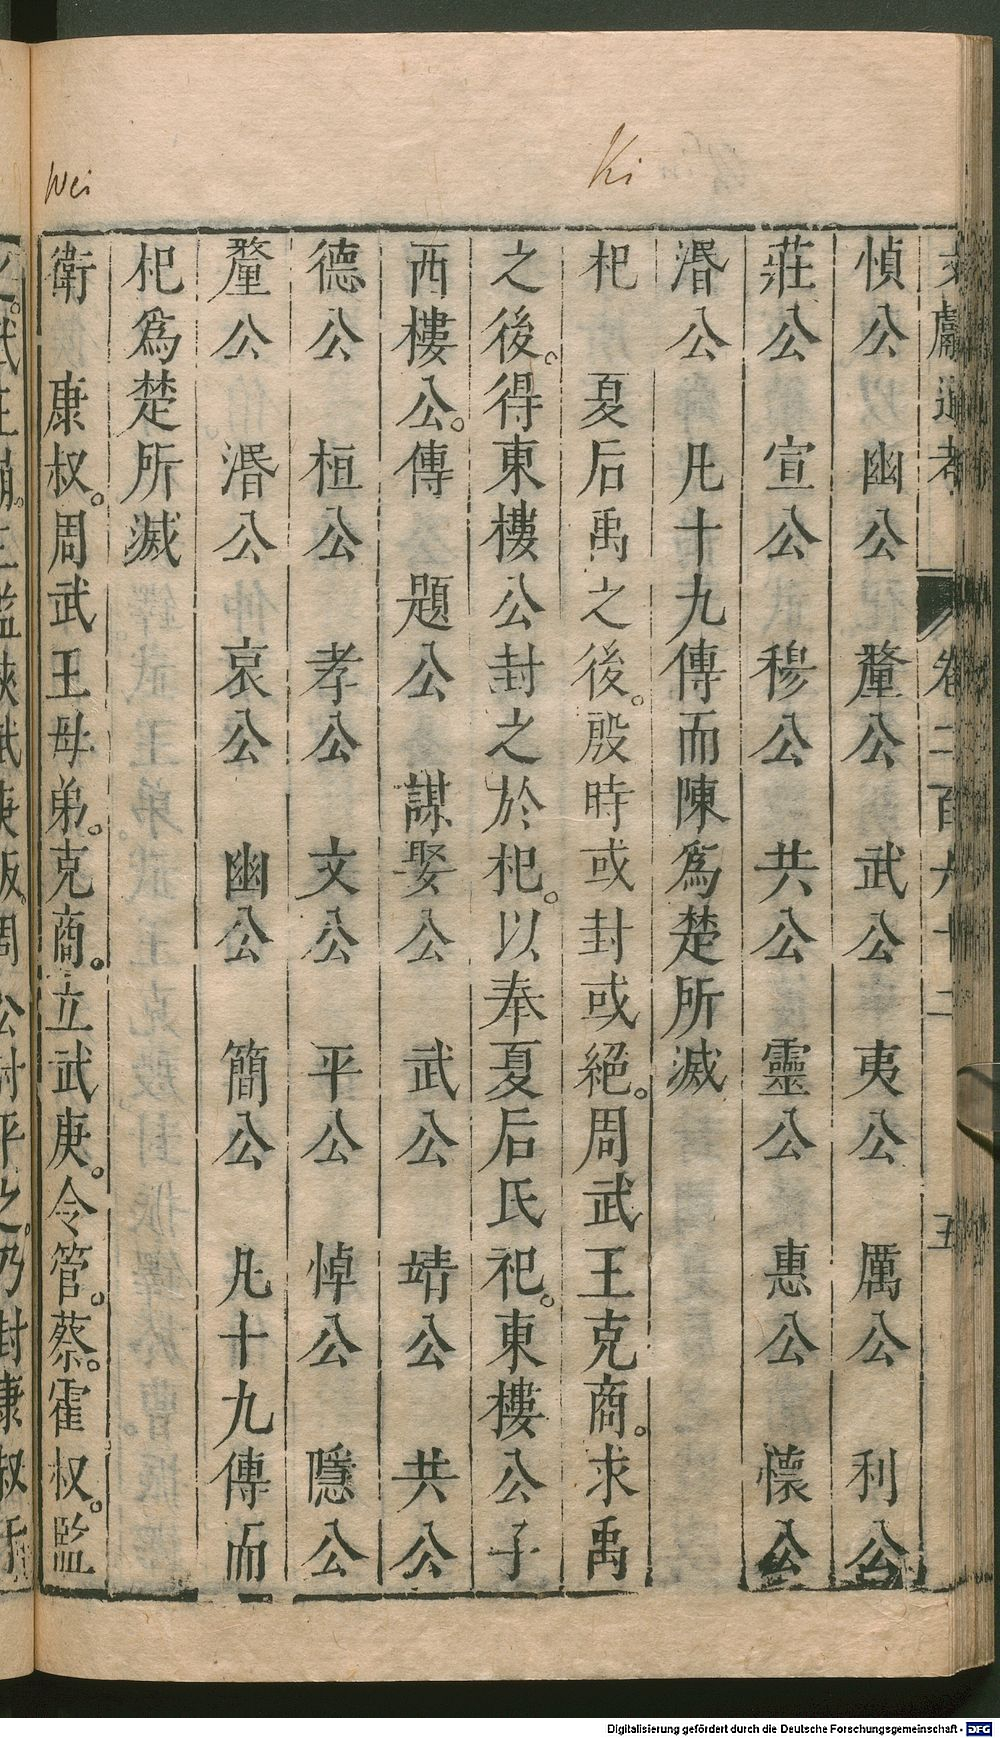 Ki
Wei
文獻通考 卷二百六十二 五
慎公 幽公 釐公 武公 夷公 厲公 利公
莊公 宣公 穆公 共公 靈公 惠公 懷公
湣公 凡十九傳而陳爲楚所滅
杞 夏后禹之後。殷時或封或絕。周武王克商。求禹
之後。得東樓公封之於杞。以奉夏后氏祀。東樓公子
西樓公。傳 題公 謀娶公 武公 靖公 共公
德公 桓公 孝公 文公 平公 悼公 隱公
釐公 湣公 哀公 幽公 簡公 凡十九傳而
杞爲楚所滅
衛 康叔。周武王母弟。克商。立武庚。令管。蔡。霍叔。監
之。武王崩。三監挾武庚叛。周公討平之。乃封康叔于
Digitalisierung gefördert durch die Deutsche Forschungsgemeinschaft - DFG